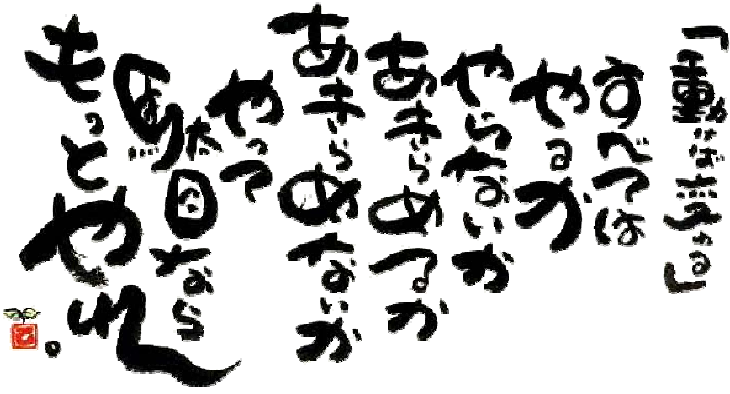 「動けば変わる」
すべては
やるか
やらないか
あきらめるか
あきらめないか
やって
駄目なら
もっとやれ。